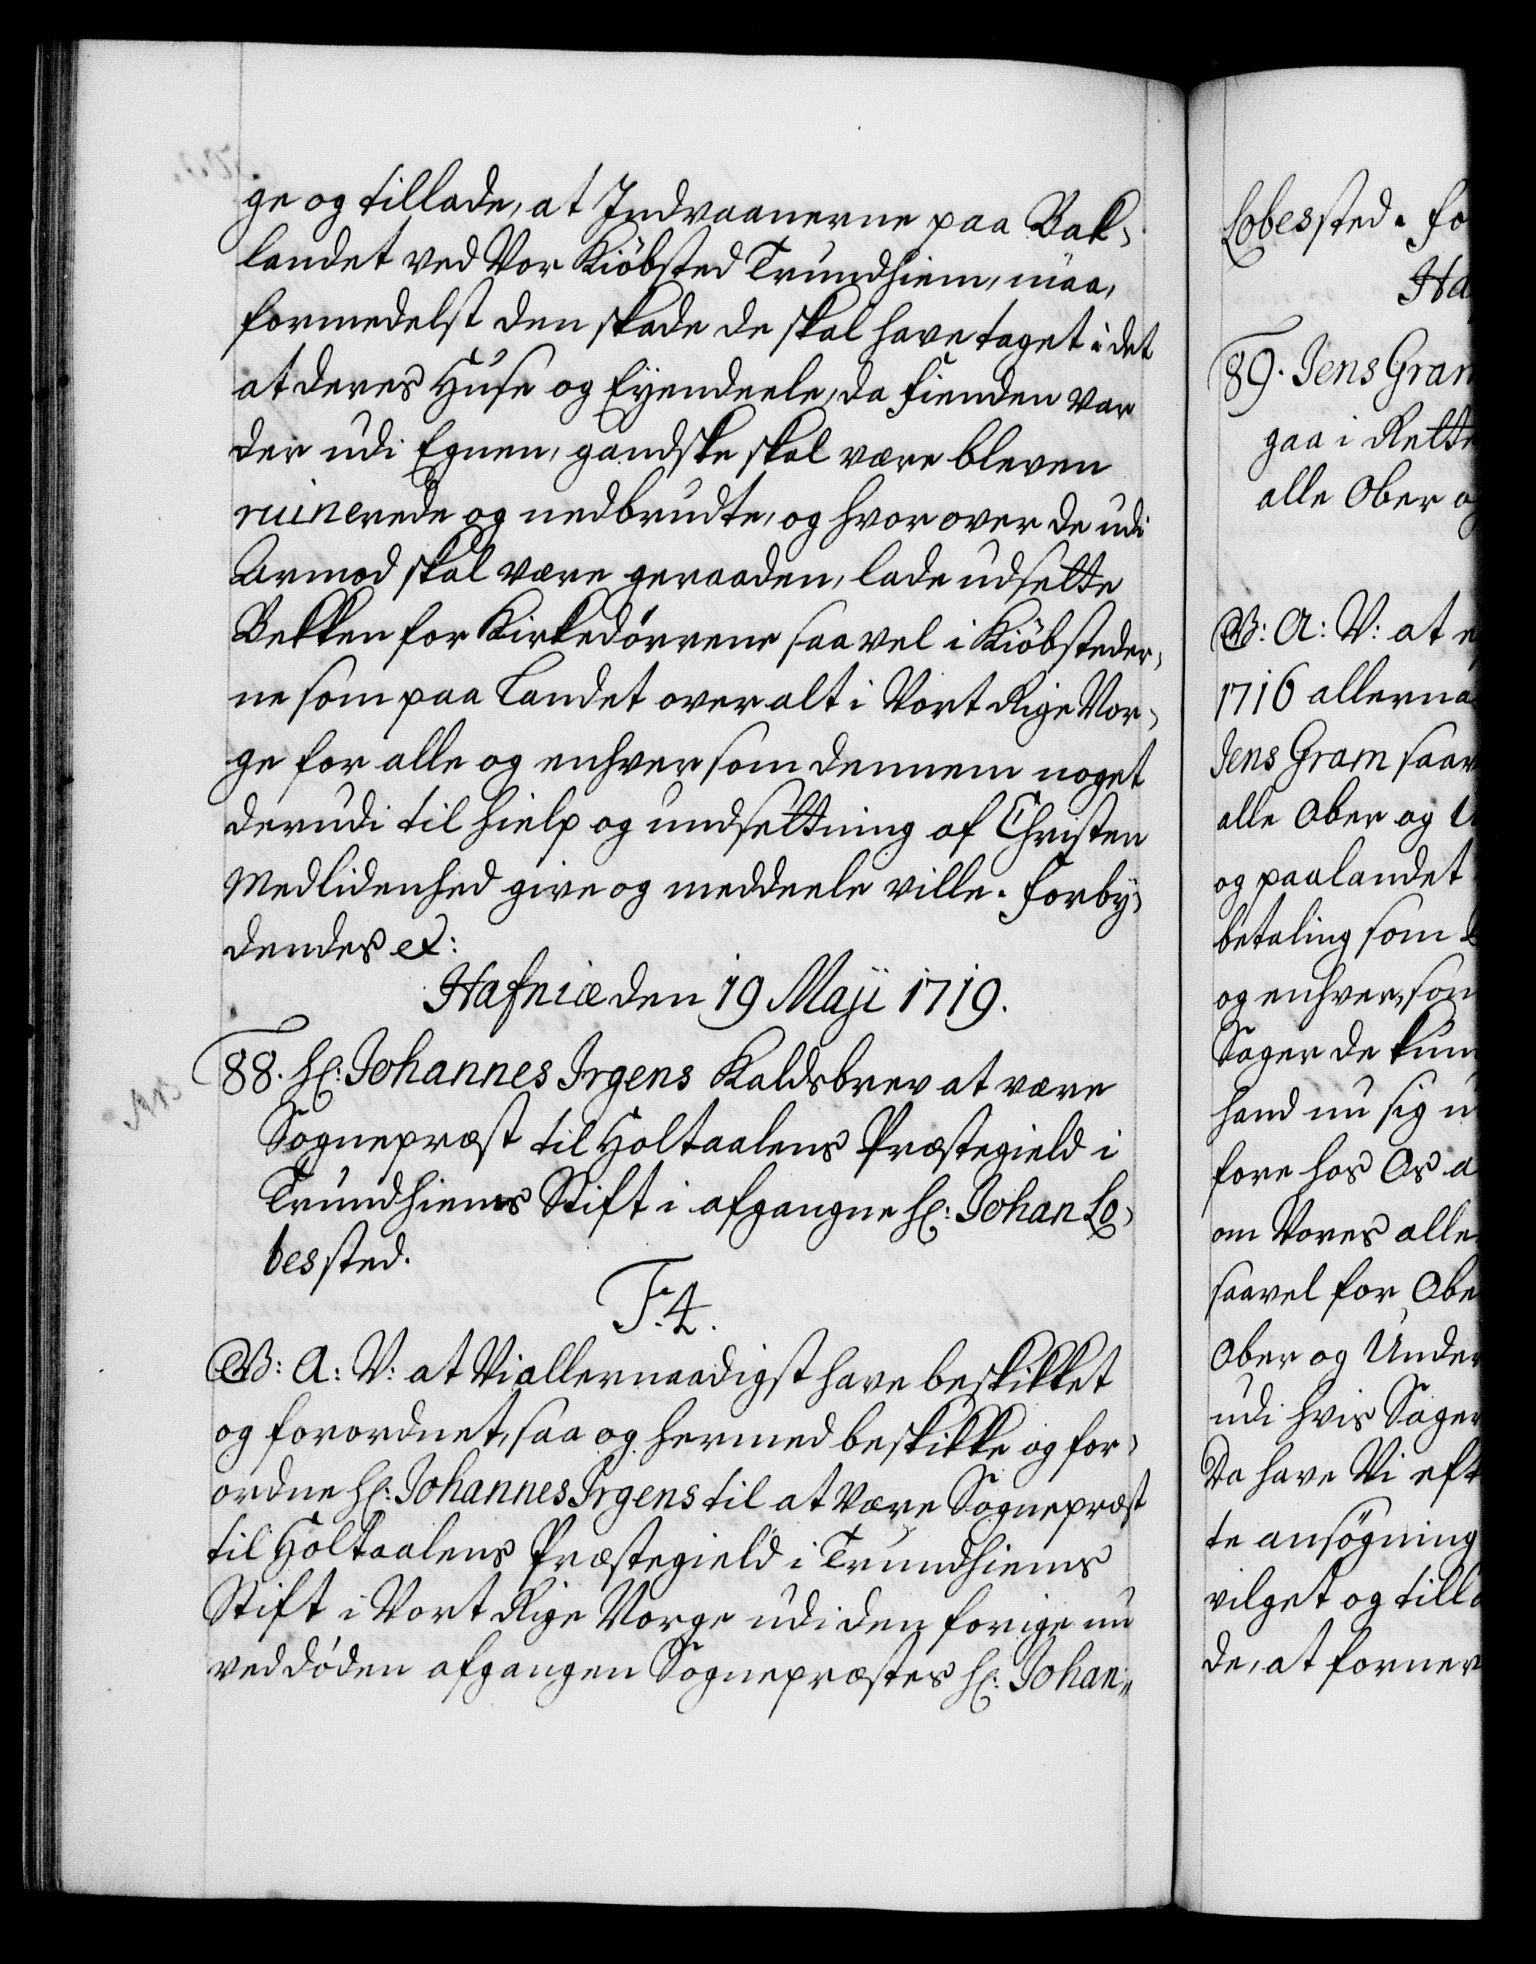 ge og tillade, at Indvaanerne paa Bak-
landet ved Vor Kiöbsted Trundhiem, maa,
formedelst den skade de skal have taget i det
at deres Huse og Eyendeele, da Fienden var
der udi Egnen, gandske skal være bleven
ruinerede og nedbrudte, og hvorover de udi
Armod skal være geraaden, lade udsette
Bekken for Kirkedörrene saavel i Kiöbsteder-
ne som paa Landet over alt i Vort Rige Nor-
ge for alle og enhver som dennem noget
derudi til hielp og undsettning af Christen
Medlidenhed give og meddeele ville. Forby-
dendes etc:
Hafniæ den 19 Maji 1719.
88. Hr: Johannes Irgens Kaldsbrev at være
Sognepræst til Holtaalens Præstegield i
Trundhiems Stift i afgangne Hr: Johan Lo-
bessted.
F. 4.
G. W: A: V: at Vi allernaadigst have beskikket
og forordnet, saa og hermed beskikke og for-
ordne Hr: Johannes Irgens til at være Sognepræst
til Holtaalens Præstegield i Trundhiems
Stift i Vort Rige Norge udi den forige nu
ved döden afgangen Sognepræstes Hr: Johan
Lobessted. Fo
Ha
89. Jens Gram
gaa i Rette
alle Ober o
W: A: V: at e
1716 allerna
Jens Gram saav
alle Ober og U
og paa landet
betaling som
og enhver, som
Sager de kun
hand nu sig u
fore hos Os a
om Vores alle
saavel for Obe
Ober og Under
udi hvis Sager
Da have Vi eft
te ansögning
vilget og tilla
de, at forner